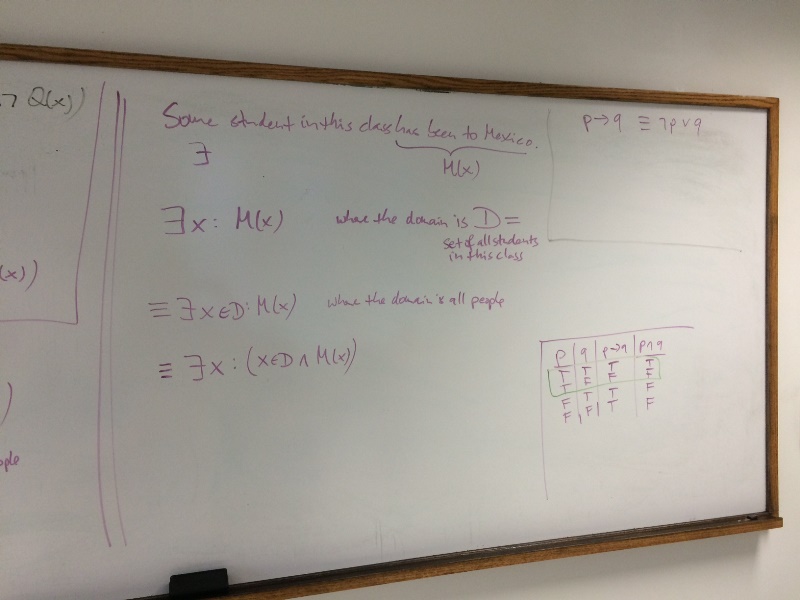 ¬ Q(x))
(x))
)
ople
Some student in this class has been to Mexico.
∃
M(x)
∃x: M(x) where the domain is D =
set of all students
in this class
≡ ∃x∈D: M(x) where the domain is all people
≡ ∃x: (x∈D ∧ M(x))
p→q ≡ ¬p∨q
p q p→q p∧q
T T T T
T F F F
F T T F
F F T F